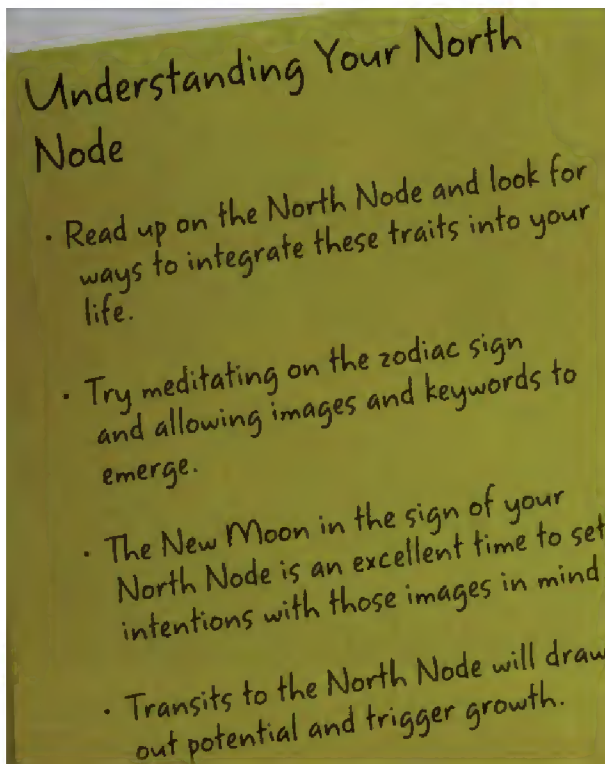 Understanding Your North
Node
· Read up on the North Node and look for
ways to integrate these traits into your
life.
· Try meditating on the zodiac sign
and allowing images and keywords to
emerge.
· The New Moon in the sign of your
North Node is an excellent time to set
intentions with those images in mind
· Transits to the North Node will draw
out potential and trigger growth.